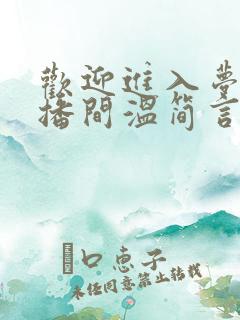 歡迎進入夢
播間溫简言
口恵子
未经同意禁止转载